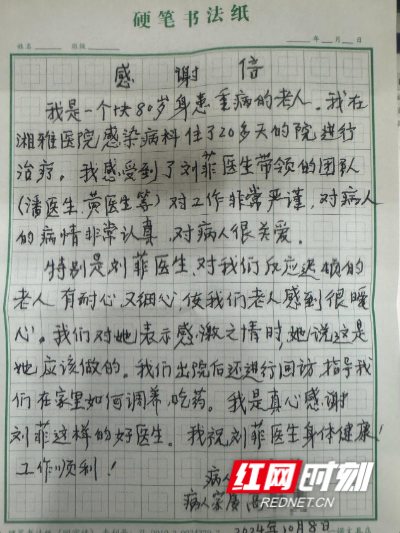 硬笔书法纸
姓名 班级 年 月 日
感谢信
我是一个快80岁身患重病的老人。我在
湘雅医院感染病科住了20多天的院进行
治疗。我感受到了刘菲医生带领的团队
(潘医生,黄医生等)对工作非常严谨,对病人
的病情非常认真,对病人很关爱。
特别是刘菲医生,对我们反应迟钝的
老人有耐心,又细心,使我们老人感到很暖
心。我们对她表示感激之情时她说这是
她应该做的。我们出院后还进行回访,指导我
们在家里如何调养,吃药。我是真心感谢
刘菲这样的好医生。我祝刘菲医生身体健康!
工作顺利!
病人
病人家属
2024年10月8日
红网时刻
REDNET.CN